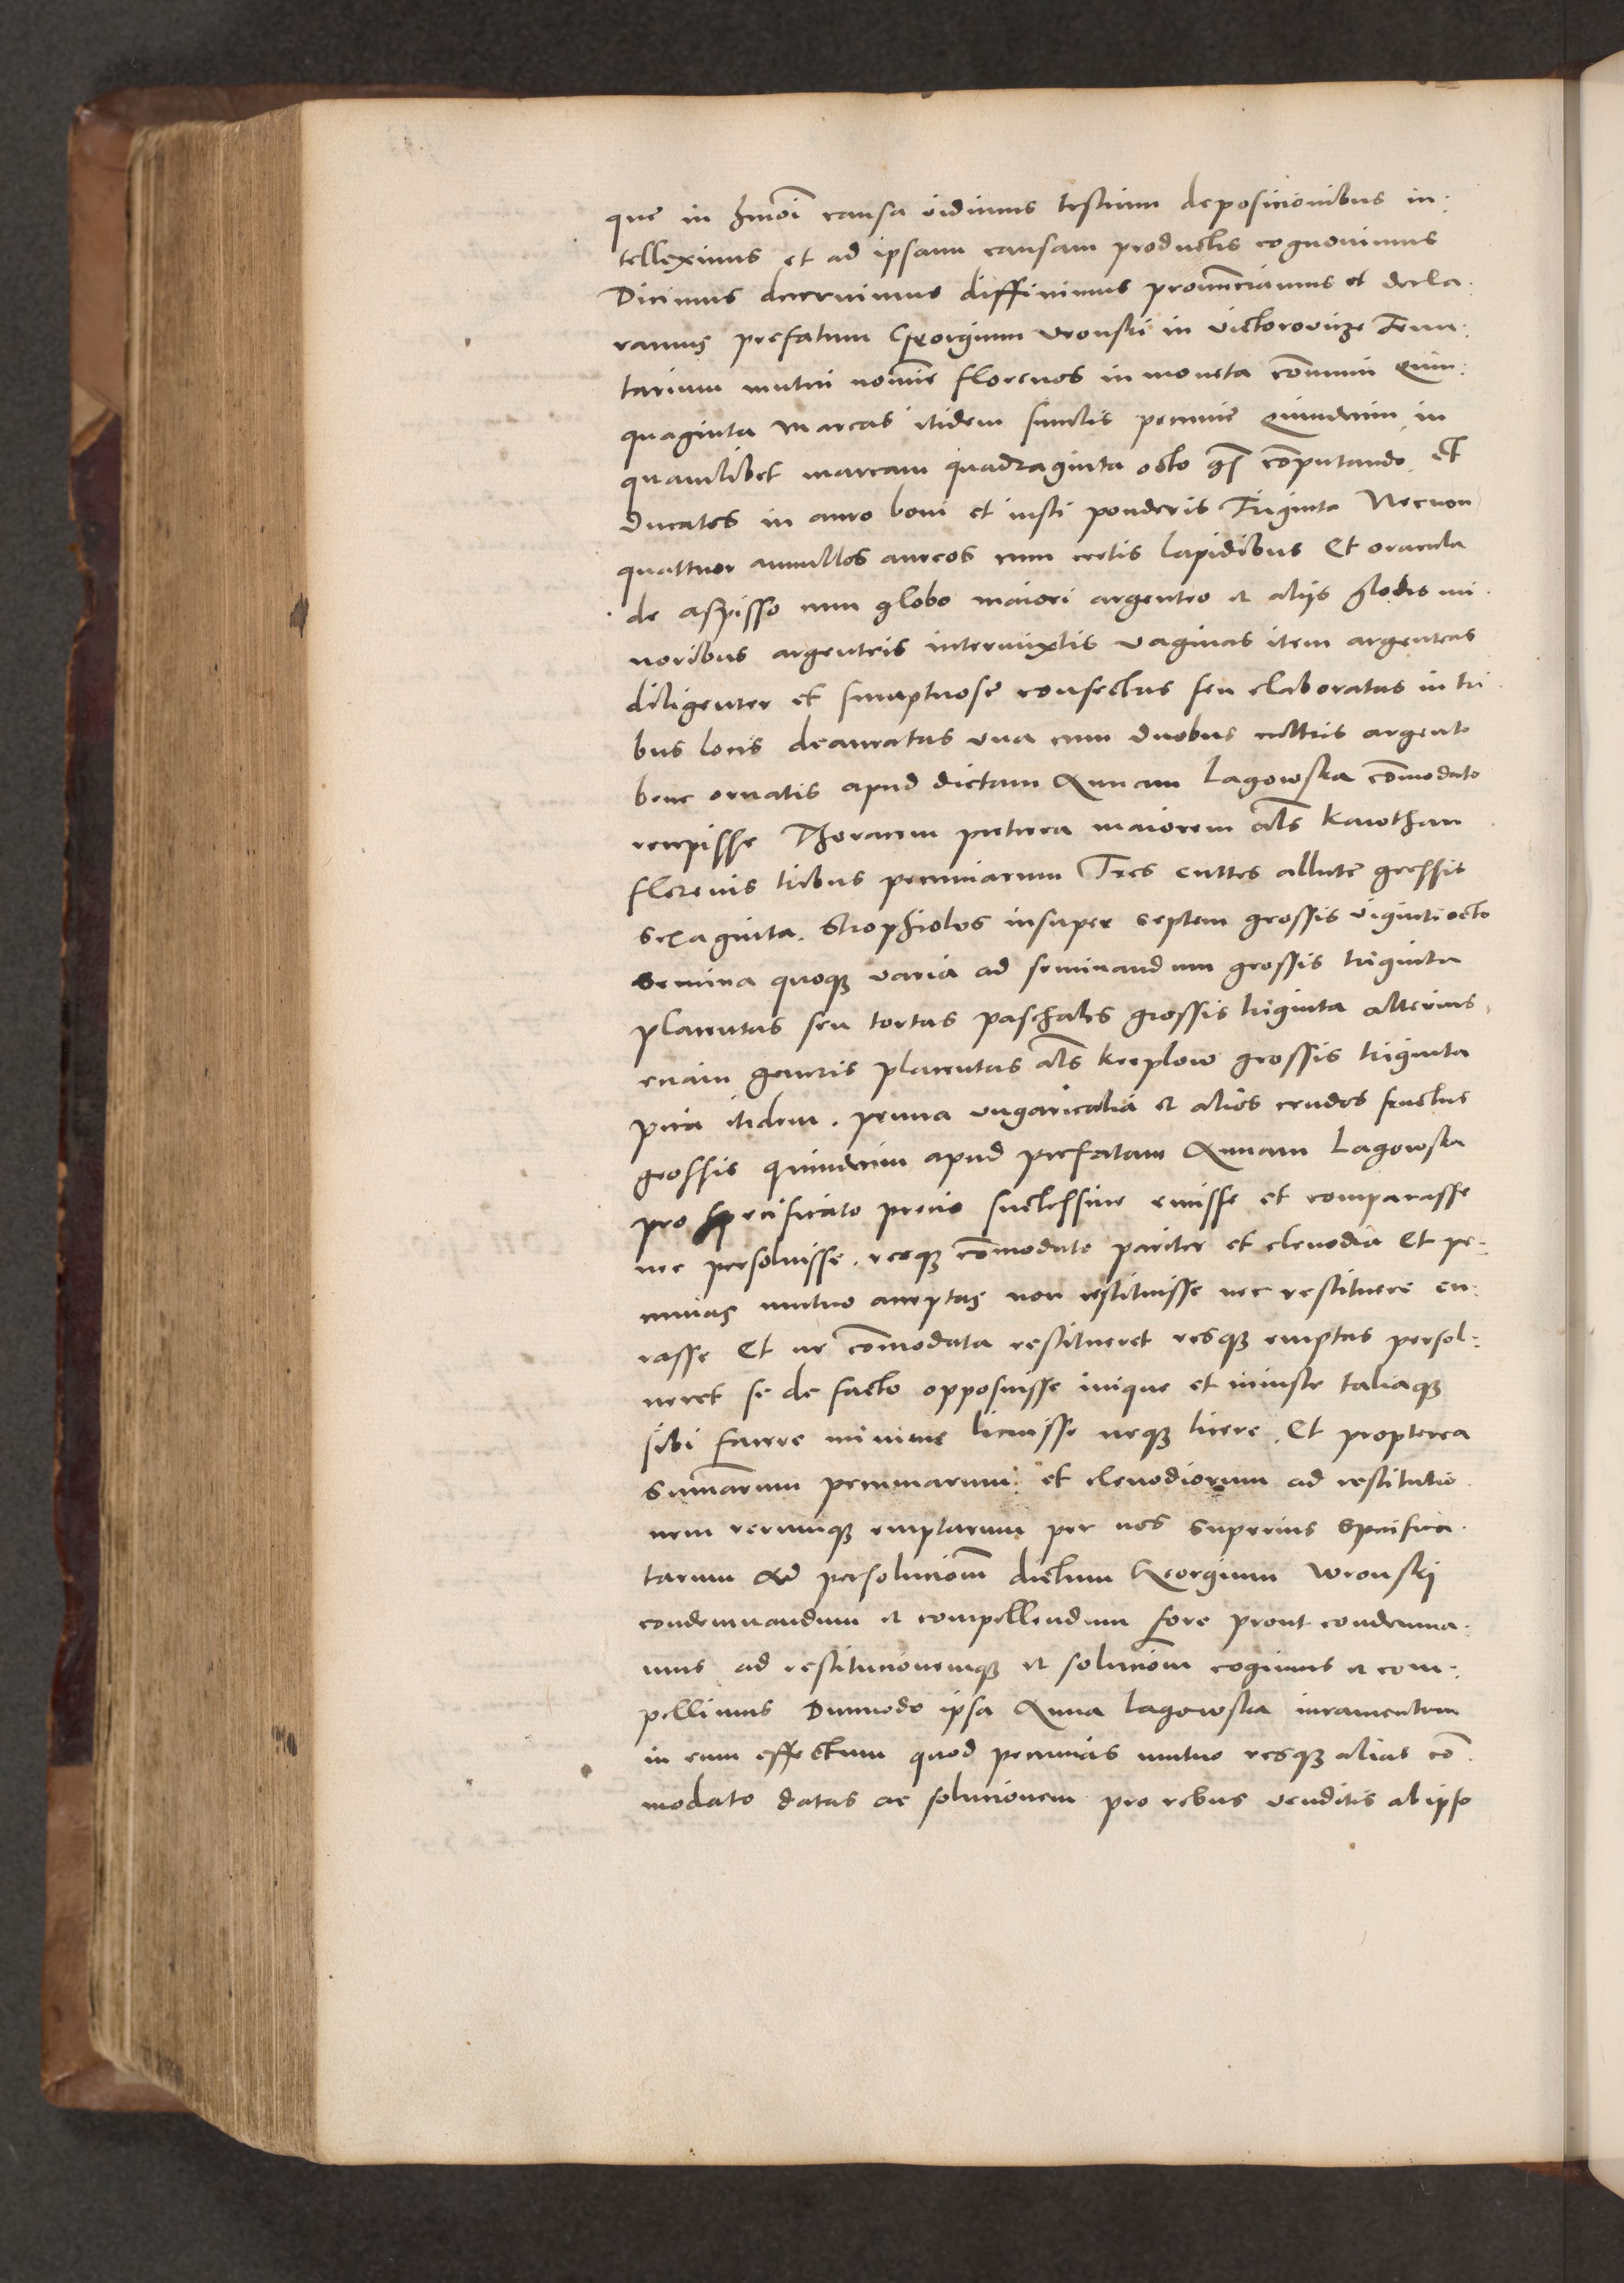 que in hmoi causa vidimus testium deposicionibus in:
telleximus et ad ipsam causam productis cognovimus
Dicimus decernimus diffinimus pronunciamus et decla:
ramus prefatum Georgium Vronski in Victorovicze Tenu:
tarium mutui nomine florenos in moneta communi Quin:
quaginta Marcas itidem pecunie Quindecim in
quamlibet marcam quadraginta octo gs computando. Et
Ducatos in auro boni et iusti ponderis Triginta Necnon
quattuor annullos aureos cum certis lapidibus Et oracula
de aspisso cum globo maiori argenteo et aliis globis mi:
noribus argenteis intermixtis vaginas item argenteas
diligenter et sumptuose confectas seu elaboratas in tri
bus locis deauratas una cum duobus cultris argento
bene ornatis apud dictam Annam Lagowska commodato
recepisse Thoracem preterea maiorem als kawthan
florenis tribus pecuniarum Tres cuttes allute grossis
sexaginta. Strophiolos insuper septem grossis viginti octo
Semina quoque varia ad seminandum grossis triginta
placentas seu tortas paschales grossis triginta alterius
eciam generis placentas als kreplow grossis triginta
pira itidem. pruna ungaricalia et alios crudos fructus
grossis quindecim apud prefatam Annam Lagowska
pro specificato precio successive emisse et comparasse
nec persolvisse. resque commodato pariter et clenodia Et pe:
cunias mutuo acceptas non restituisse nec restituere cu:
rasse Et ne commodata restitueret resque emptas persol:
veret se de facto opposuisse inique et iniuste taliaque
sibi facere minime licuisse neque licere. Et propterea
Summarum pecuniarum et clenodiorum ad restitutio
nem rerumque emptarum per nos superius Specifica:
tarum ad persolucionem dictum Georgium Wronskj
condemnandum et compellendum fore prout condemna:
mus ad restitucionemque et solucionem cogimus et com:
pellimus Dummodo ipsa Anna Lagowska iuramentum
in eum effectum quod pecunias mutuo resque alias co
modato datas ac solucionem pro rebus venditis ab ipso